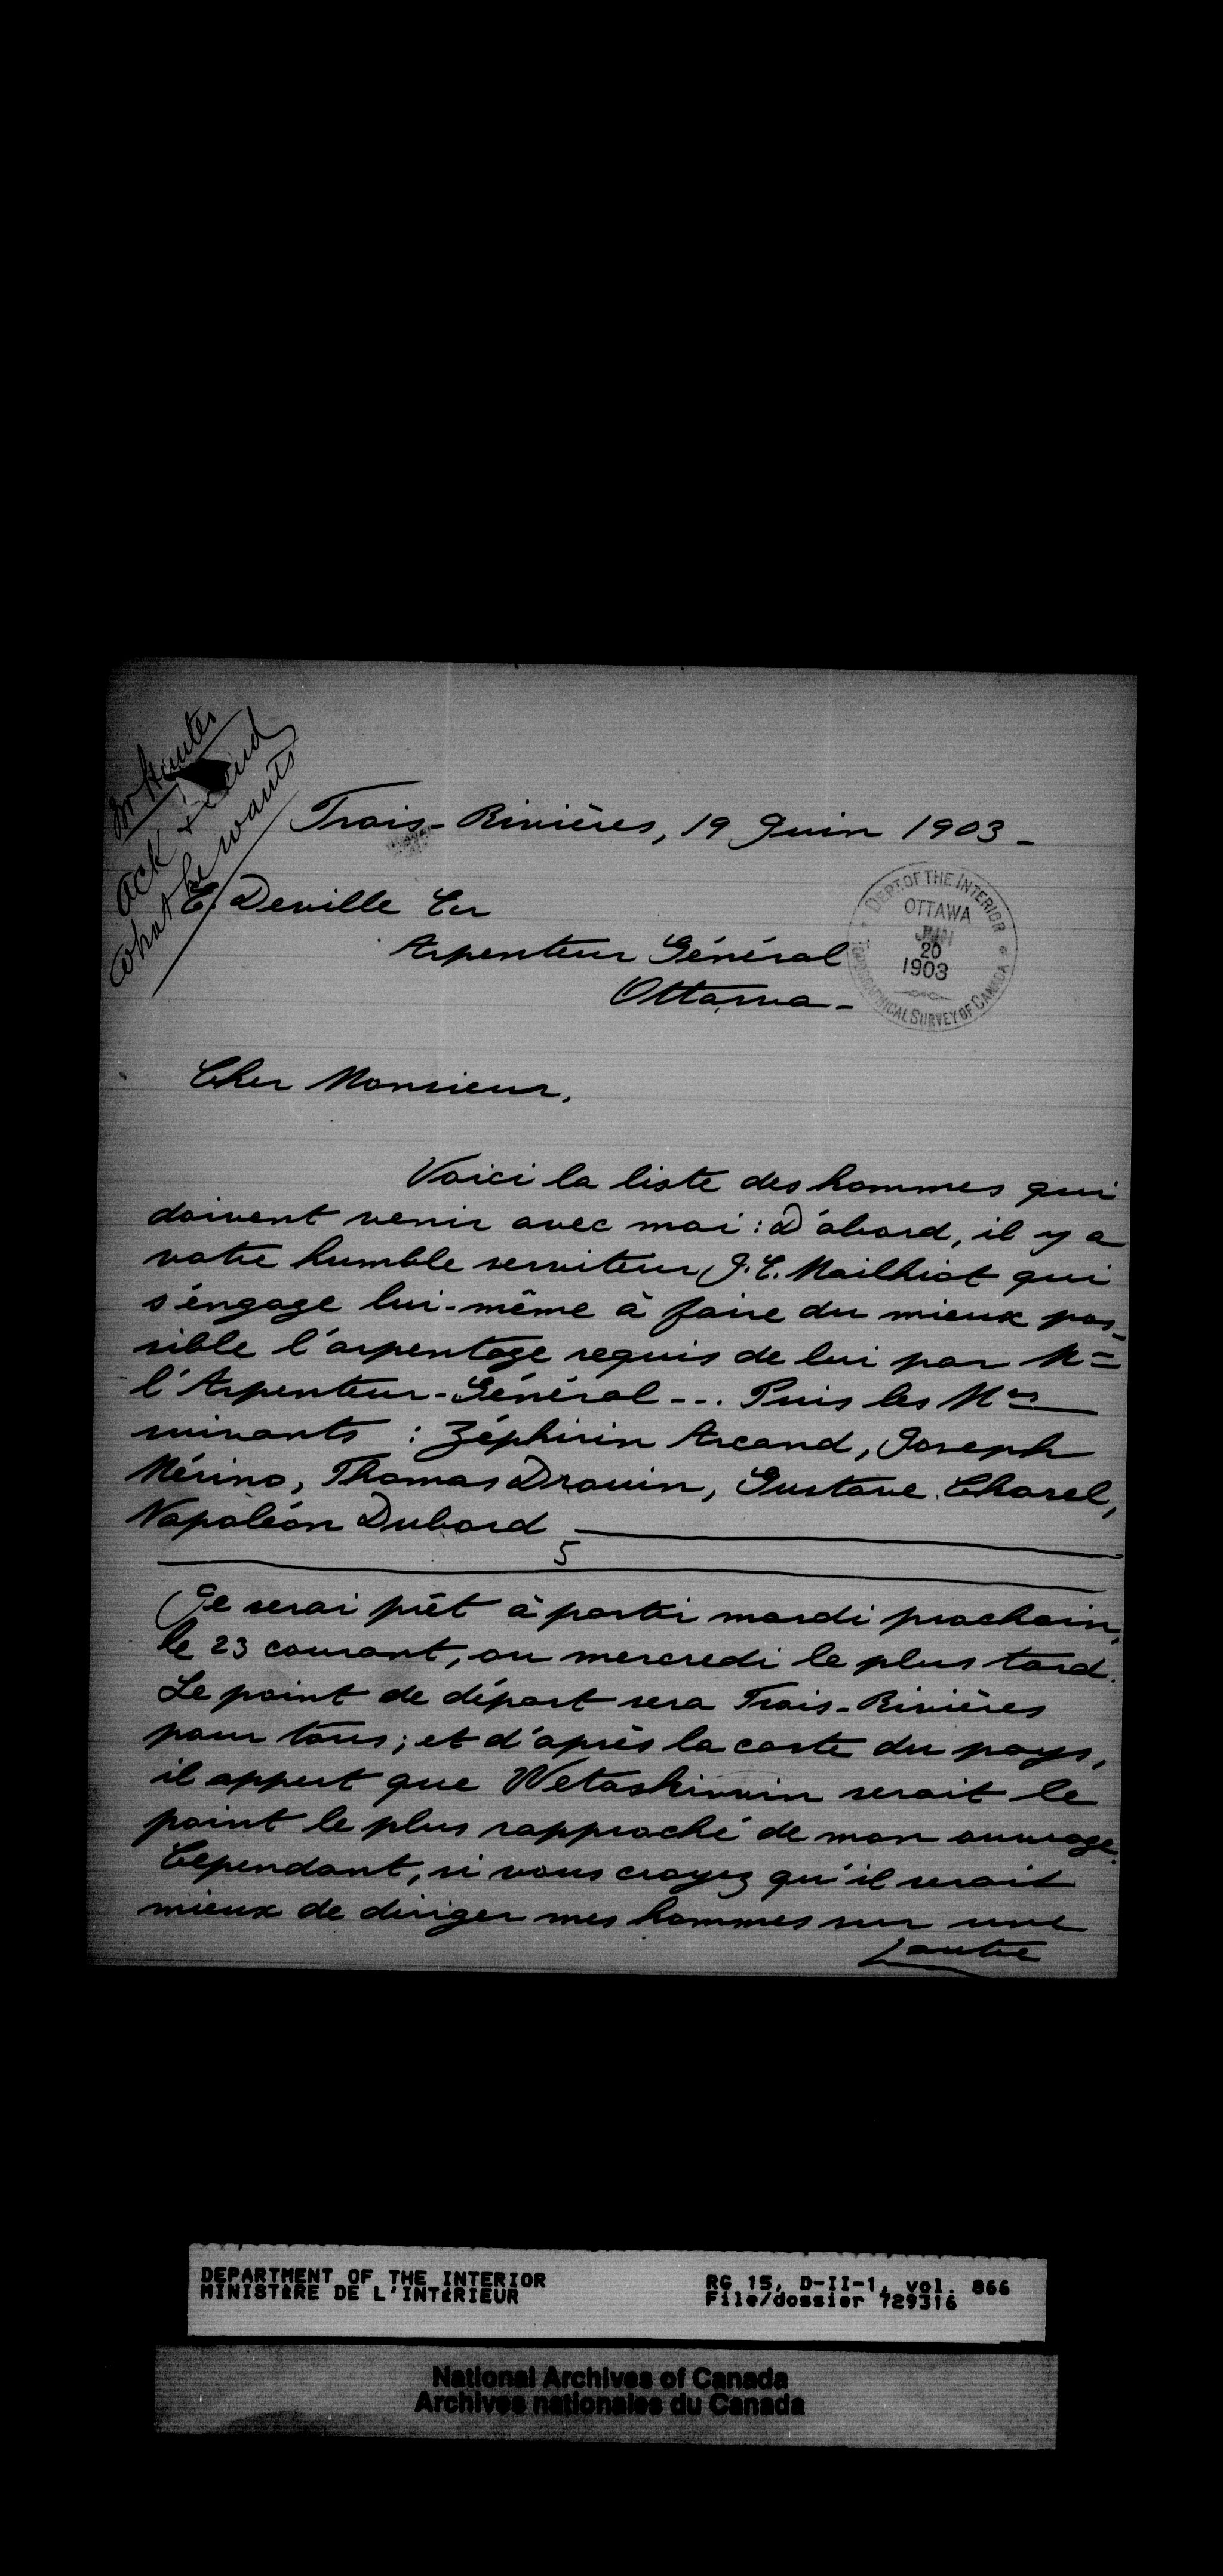 Mr Hunter
Ack & send
what he wants
Trois-Rivières, 19 Juin 1903-
E. Deville Er
Arpenteur Général
Ottawa-
DEPT. OF THE INTERIOR
OTTAWA
JUN
20
1903
TOPOGRAPHICAL SURVEY OF CANADA
Cher Monsieur,
Voici la liste des hommes qui
doivent venir avec moi: D'abord, il y a
votre humble serviteur J. E. Mailhiot qui
s'engage lui-même à faire du mieux pos-
sible l'arpentage requis de lui par Mr
l'Arpenteur-Général--. Puis les Mrs
suivants : Zéphirin Arcand, Joseph
Mérino, Thomas Drouin, Gustave Charel,
Napoléon Dubord
5
Je serai prêt à partir mardi prochain,
le 23 courant, ou mercredi le plus tard.
Le point de départ sera Trois-Rivières
pour tous; et d'après la carte du pays,
il appert que Wetaskiwin serait le
point le plus rapproché de mon ouvrage.
Cependant, si vous croyez qu'il serait
mieux de diriger mes hommes sur une
autre
DEPARTMENT OF THE INTERIOR
MINISTÈRE DE L'INTÉRIEUR
RG 15, D-II-1, vol. 866
File/dossier 729316
National Archives of Canada
Archives nationales du Canada